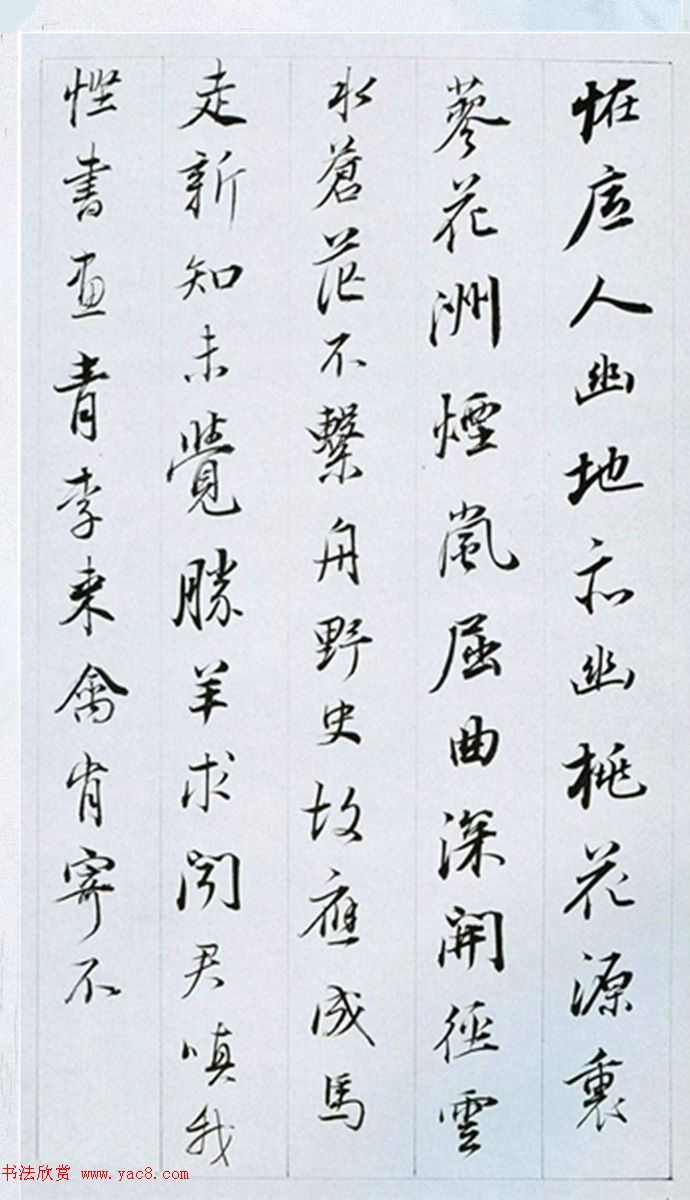 恠底人幽地亦幽桃花源裏
蓼花洲煙嵐屈曲深開徑雲
水蒼茫不繫舟野史故應成馬
走新知未覺勝羊求聞君嗔我
慳書畫青李來禽肯寄不
书法欣赏 www.yac8.com